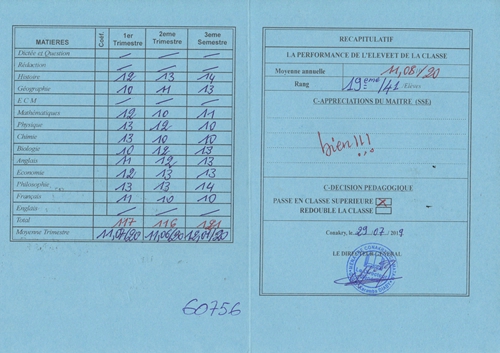 MATIERES Coéf. 1er Trimestre 2eme Trimestre 3eme Semestre
Dictée et Question
Rédaction
Histoire 12 13 14
Géographie 10 11 13
E C M
Mathématiques 12 10 11
Physique 13 12 10
Chimie 13 10 10
Biologie 10 12 13
Anglais 11 12 13
Economie 12 13 13
Philosophie 13 13 14
Français 11 10 10
Englais
Total 117 116
Moyenne Trimestre
60756
RECAPITULATIF
LA PERFORMANCE DE L'ELEVE ET DE LA CLASSE
Moyenne annuelle 11,08/20
Rang 19ème/41 Elèves
C-APPRECIATIONS DU MAITRE (SSE)
bien!!!
C-DECISION PEDAGOGIQUE
PASSE EN CLASSE SUPERIEURE X
REDOUBLE LA CLASSE
Conakry, le 29.07/2019
LE DIRECTEUR GENERAL